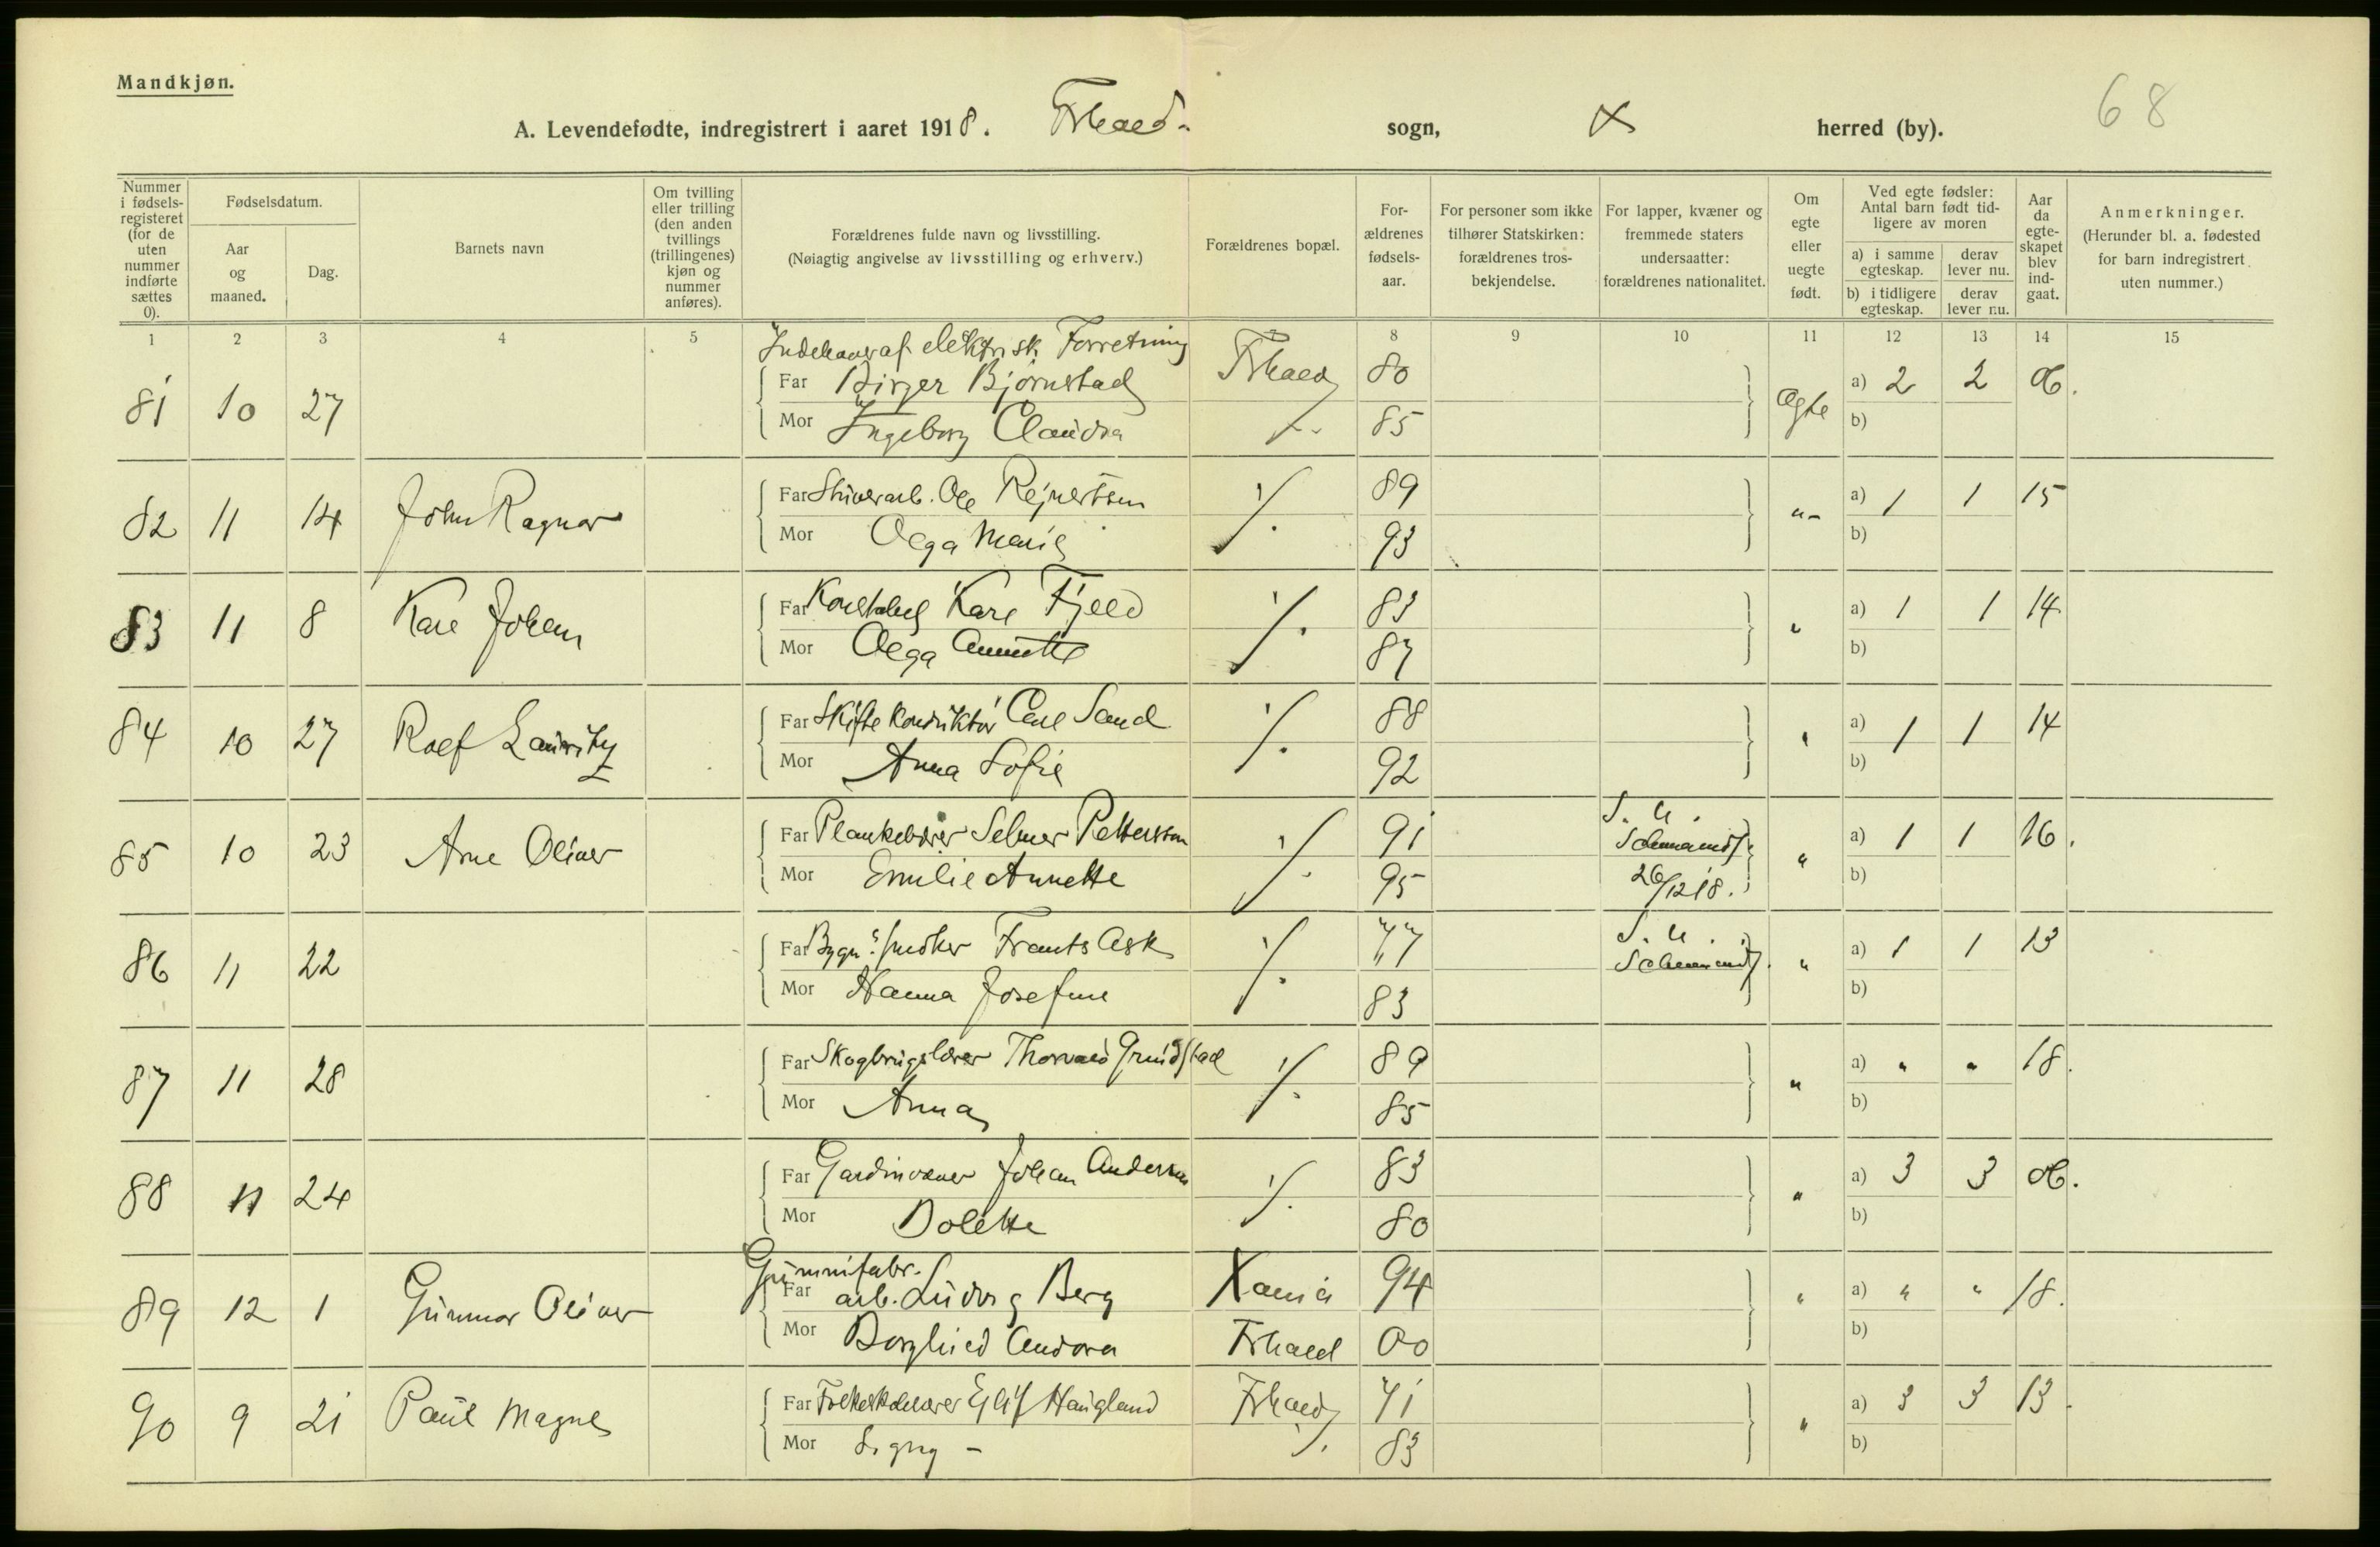 Mandkjøn.
68
A. Levendefødte, indregistrert i aaret 1918. Frhald. sogn, herred (by).
Nummer i fødselsregisteret (for de uten nummer indførte sættes 0).
Fødselsdatum.
Aar og maaned.
Dag.
Barnets navn
Om tvilling eller trilling (den anden tvillings (trillingenes) kjøn og nummer anføres).
Forældrenes fulde navn og livsstilling.
(Nøiagtig angivelse av livsstilling og erhverv.)
Forældrenes bopæl.
Forældrenes fødselsaar.
For personer som ikke tilhører Statskirken: forældrenes trosbekjendelse.
For lapper, kvæner og fremmede staters undersaatter: forældrenes nationalitet.
Om egte eller uegte født.
Ved egte fødsler: Antal barn født tidligere av moren
a) i samme egteskap.
derav lever nu.
b) i tidligere egteskap.
derav lever nu.
Aar da egteskapet blev indgaat.
Anmerkninger.
(Herunder bl. a. fødested for barn indregistrert uten nummer.)
1 2 3 4 5 8 9 10 11 12 13 14 15
Indehaver af elektrisk Forretning
81 10 27 Far Birger Bjørnstad Frhald 80 Egte a) 2 2 06.
Mor Ingeborg Claudia 85 b)
82 11 14 John Ragnar Far Ole Rejnertsen 89 "- a) 1 1 15
Mor Olga Marie 93 b)
83 11 8 Karl Johan Far Konstabel Karl Fjeld 83 " a) 1 1 14
Mor Olga Annette 87 b)
84 10 27 Rolf Lauritz Far Skiftekonduktør Carl Sand 88 " a) 1 1 14
Mor Anna Sofie 92 b)
85 10 23 Arne Oliver Far Plankebærer Selmer Pettersen 91 S. U. a) 1 1 16.
Mor Emilie Annette 95 26/12 18. " b)
86 11 22 Far Bygn.s snedker Frants Ask 77 S. U. " a) 1 1 13
Mor Hanna Josefine 83 b)
87 11 28 Far Skogbrugslærer Thorvald Grundstad 89 " a) " " 18.
Mor Anna 85 b)
88 11 24 Far Gardinvæver Johan Andersen 83 " a) 3 3 06.
Mor Bolette 80 b)
Gummifabr.
89 12 1 Gunnar Oliver Far arb. Ludvig Berg Xania 94 " a) " " 18.
Mor Borghild Andora Frhald 00 b)
90 9 21 Paul Magne Far Folkeskolelærer Eilif Haugland Frhald 71 " a) 3 3 13.
Mor Signy - 83 b)